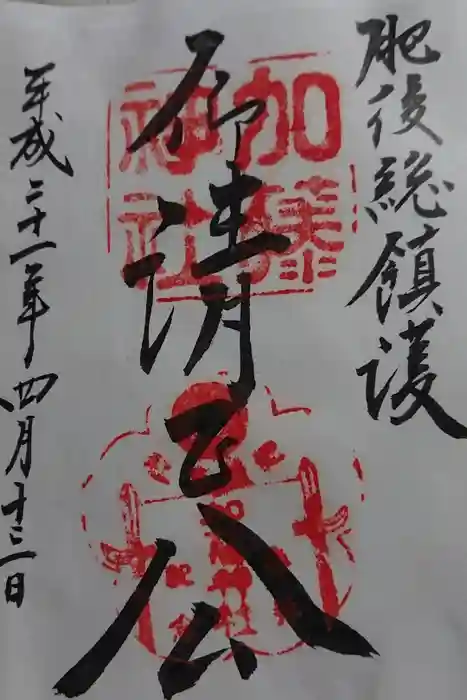 肥後総鎮護
加藤
神社
御清正公
平成二十一年四月十三日